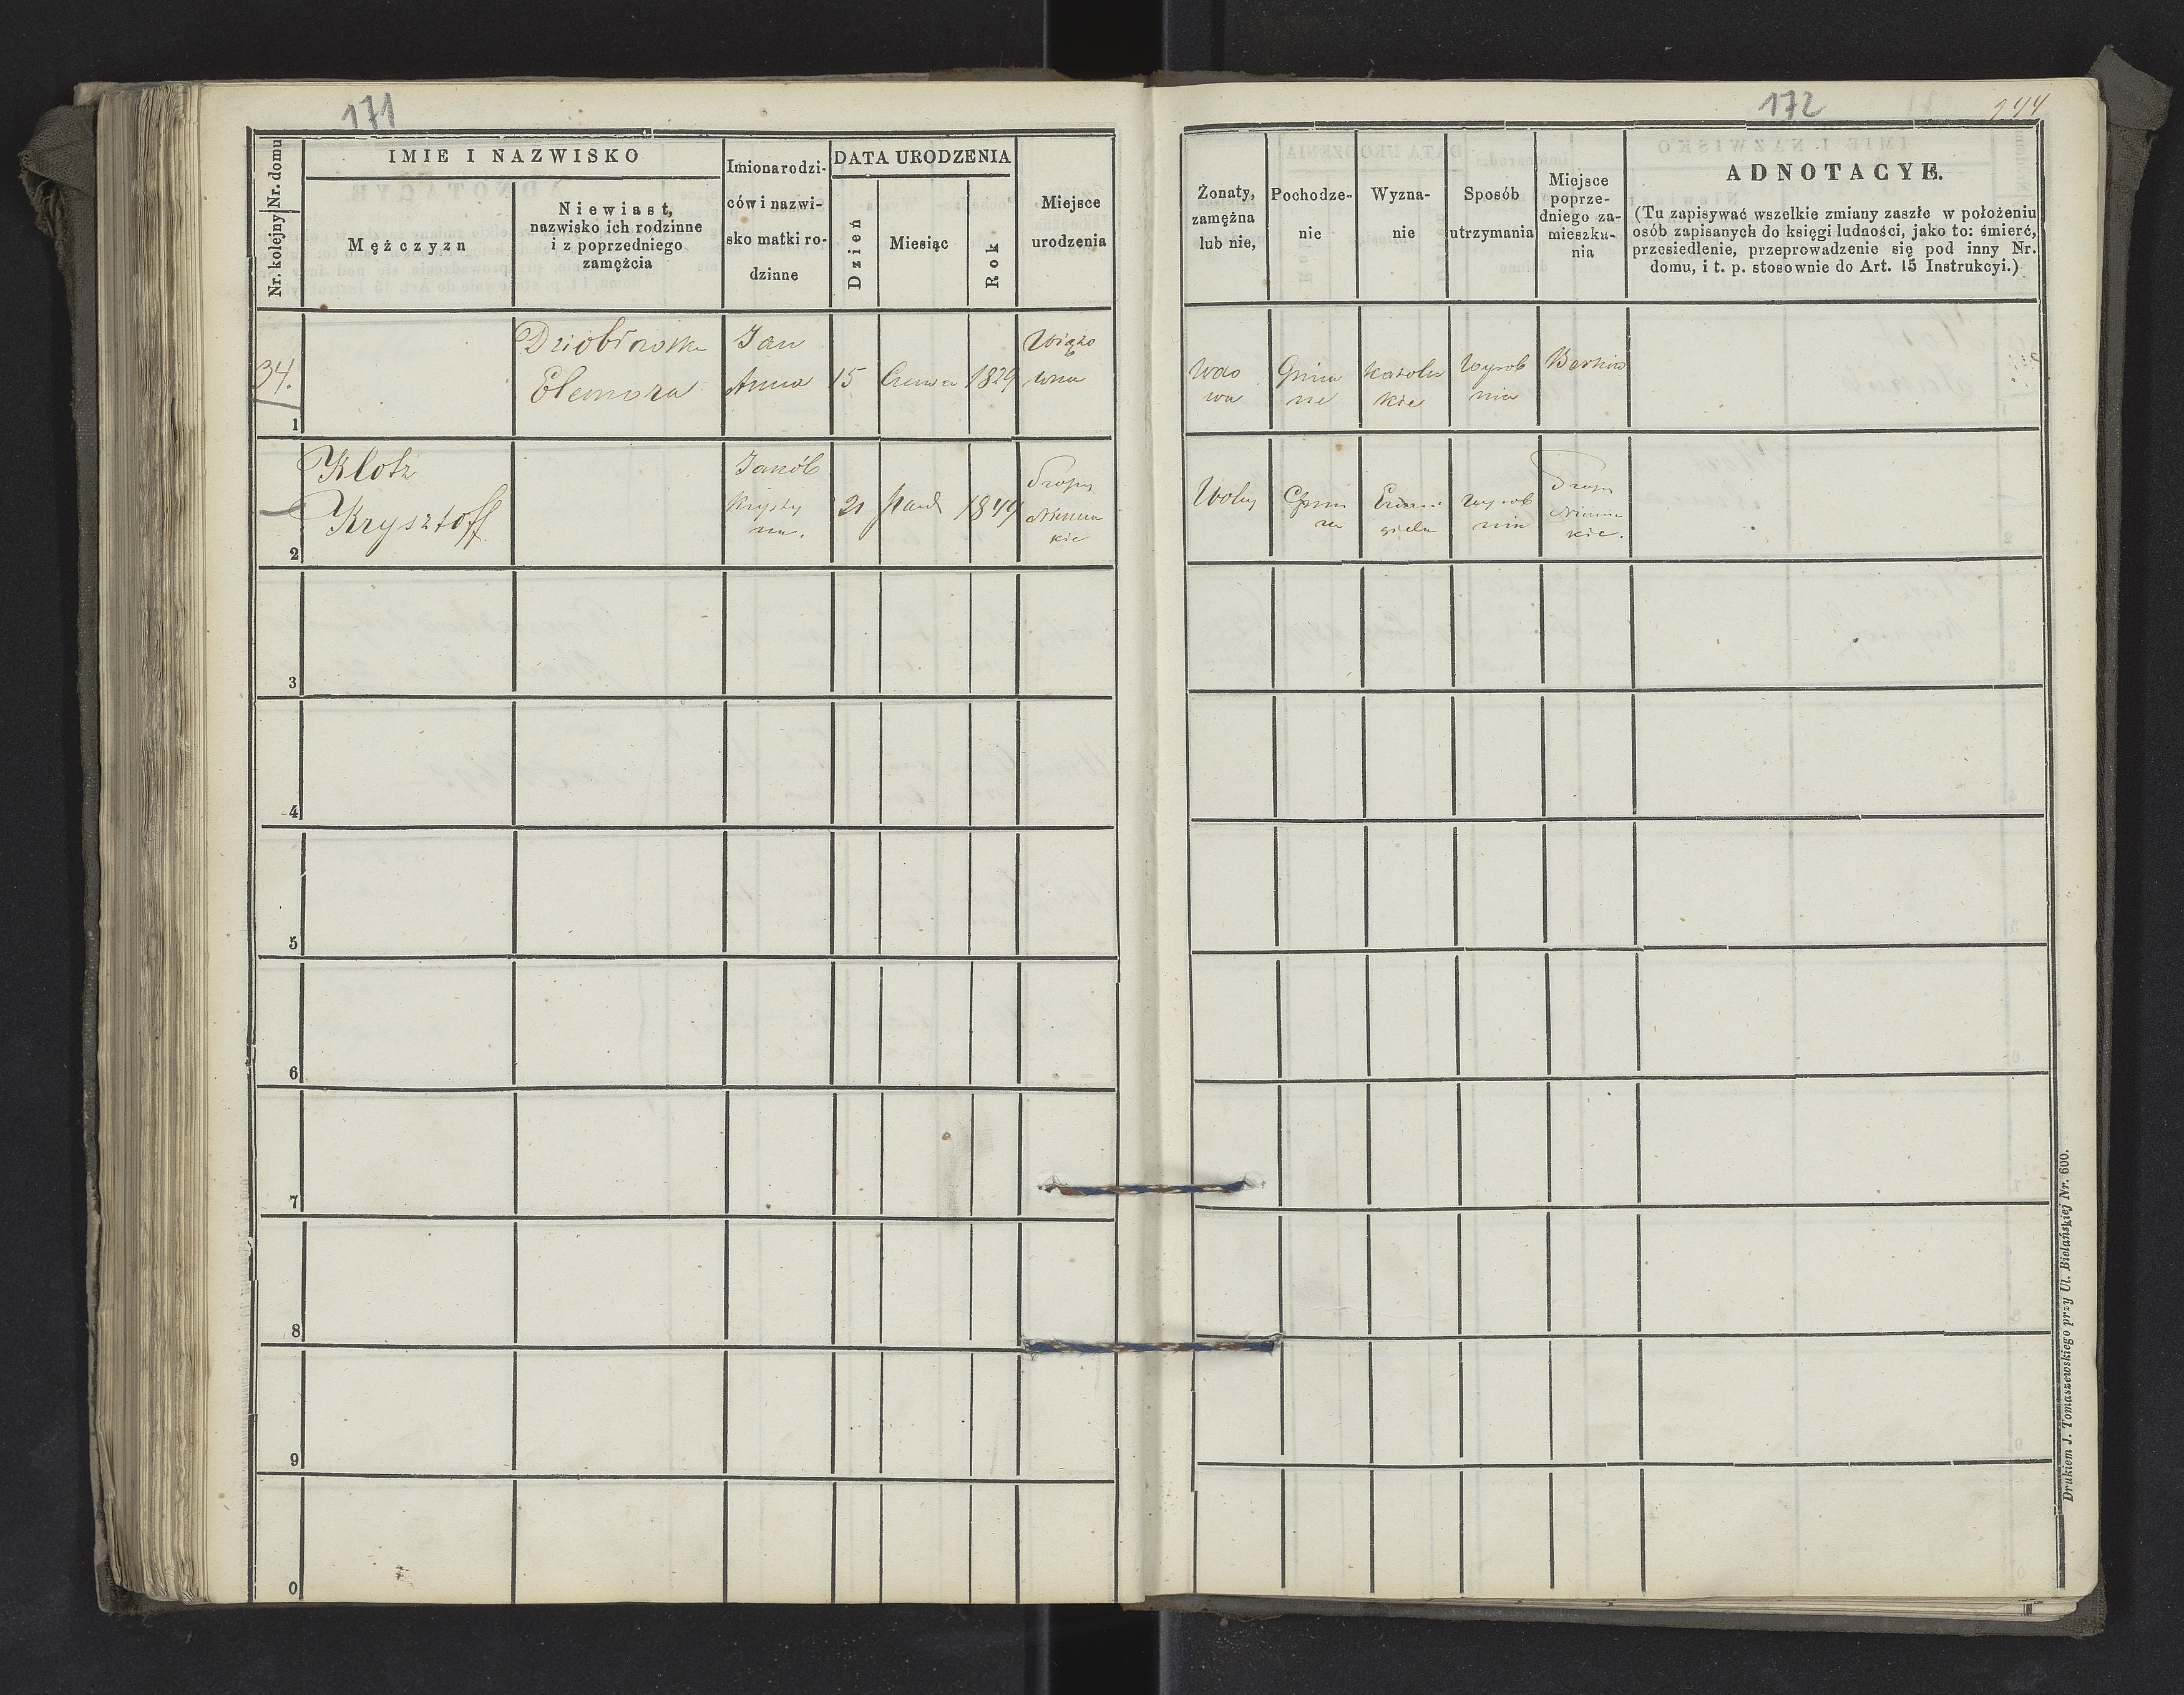 171
Nr. kolejny Nr. domu
IMIE I NAZWISKO
Mężczyzn
Niewiast,
nazwisko ich rodzinne
i z poprzedniego
zamężcia
Imiona rodzi-
ców i nazwi-
sko matki ro-
dzinne
DATA URODZENIA
Dzień
Miesiąc
Rok
Miejsce
urodzenia
34.
1
Eleonora
Jan
Anna
15
1829
2
Klotz
Krysztoff
Krysty
na.
21
3
4
5
6
7
8
9
0
172
Żonaty,
zamężna
lub nie,
Pochodze-
nie
Wyzna-
nie
Sposób
utrzymania
Miejsce
poprze-
dniego za-
mieszka-
nia
ADNOTACYE.
(Tu zapisywać wszelkie zmiany zaszłe w położeniu
osób zapisanych do księgi ludności, jako to: śmierć,
przesiedlenie, przeprowadzenie się pod inny Nr.
domu, i t. p. stosownie do Art. 15 Instrukcyi.)
wdo
wa
Gmin
ne
Katolic
kie
Wyrob
nia
Wolny
Gmin
ne
wyrob
nik
Drukiem J. Tomaszewskiego przy Ul. Bielańskiej Nr. 600.